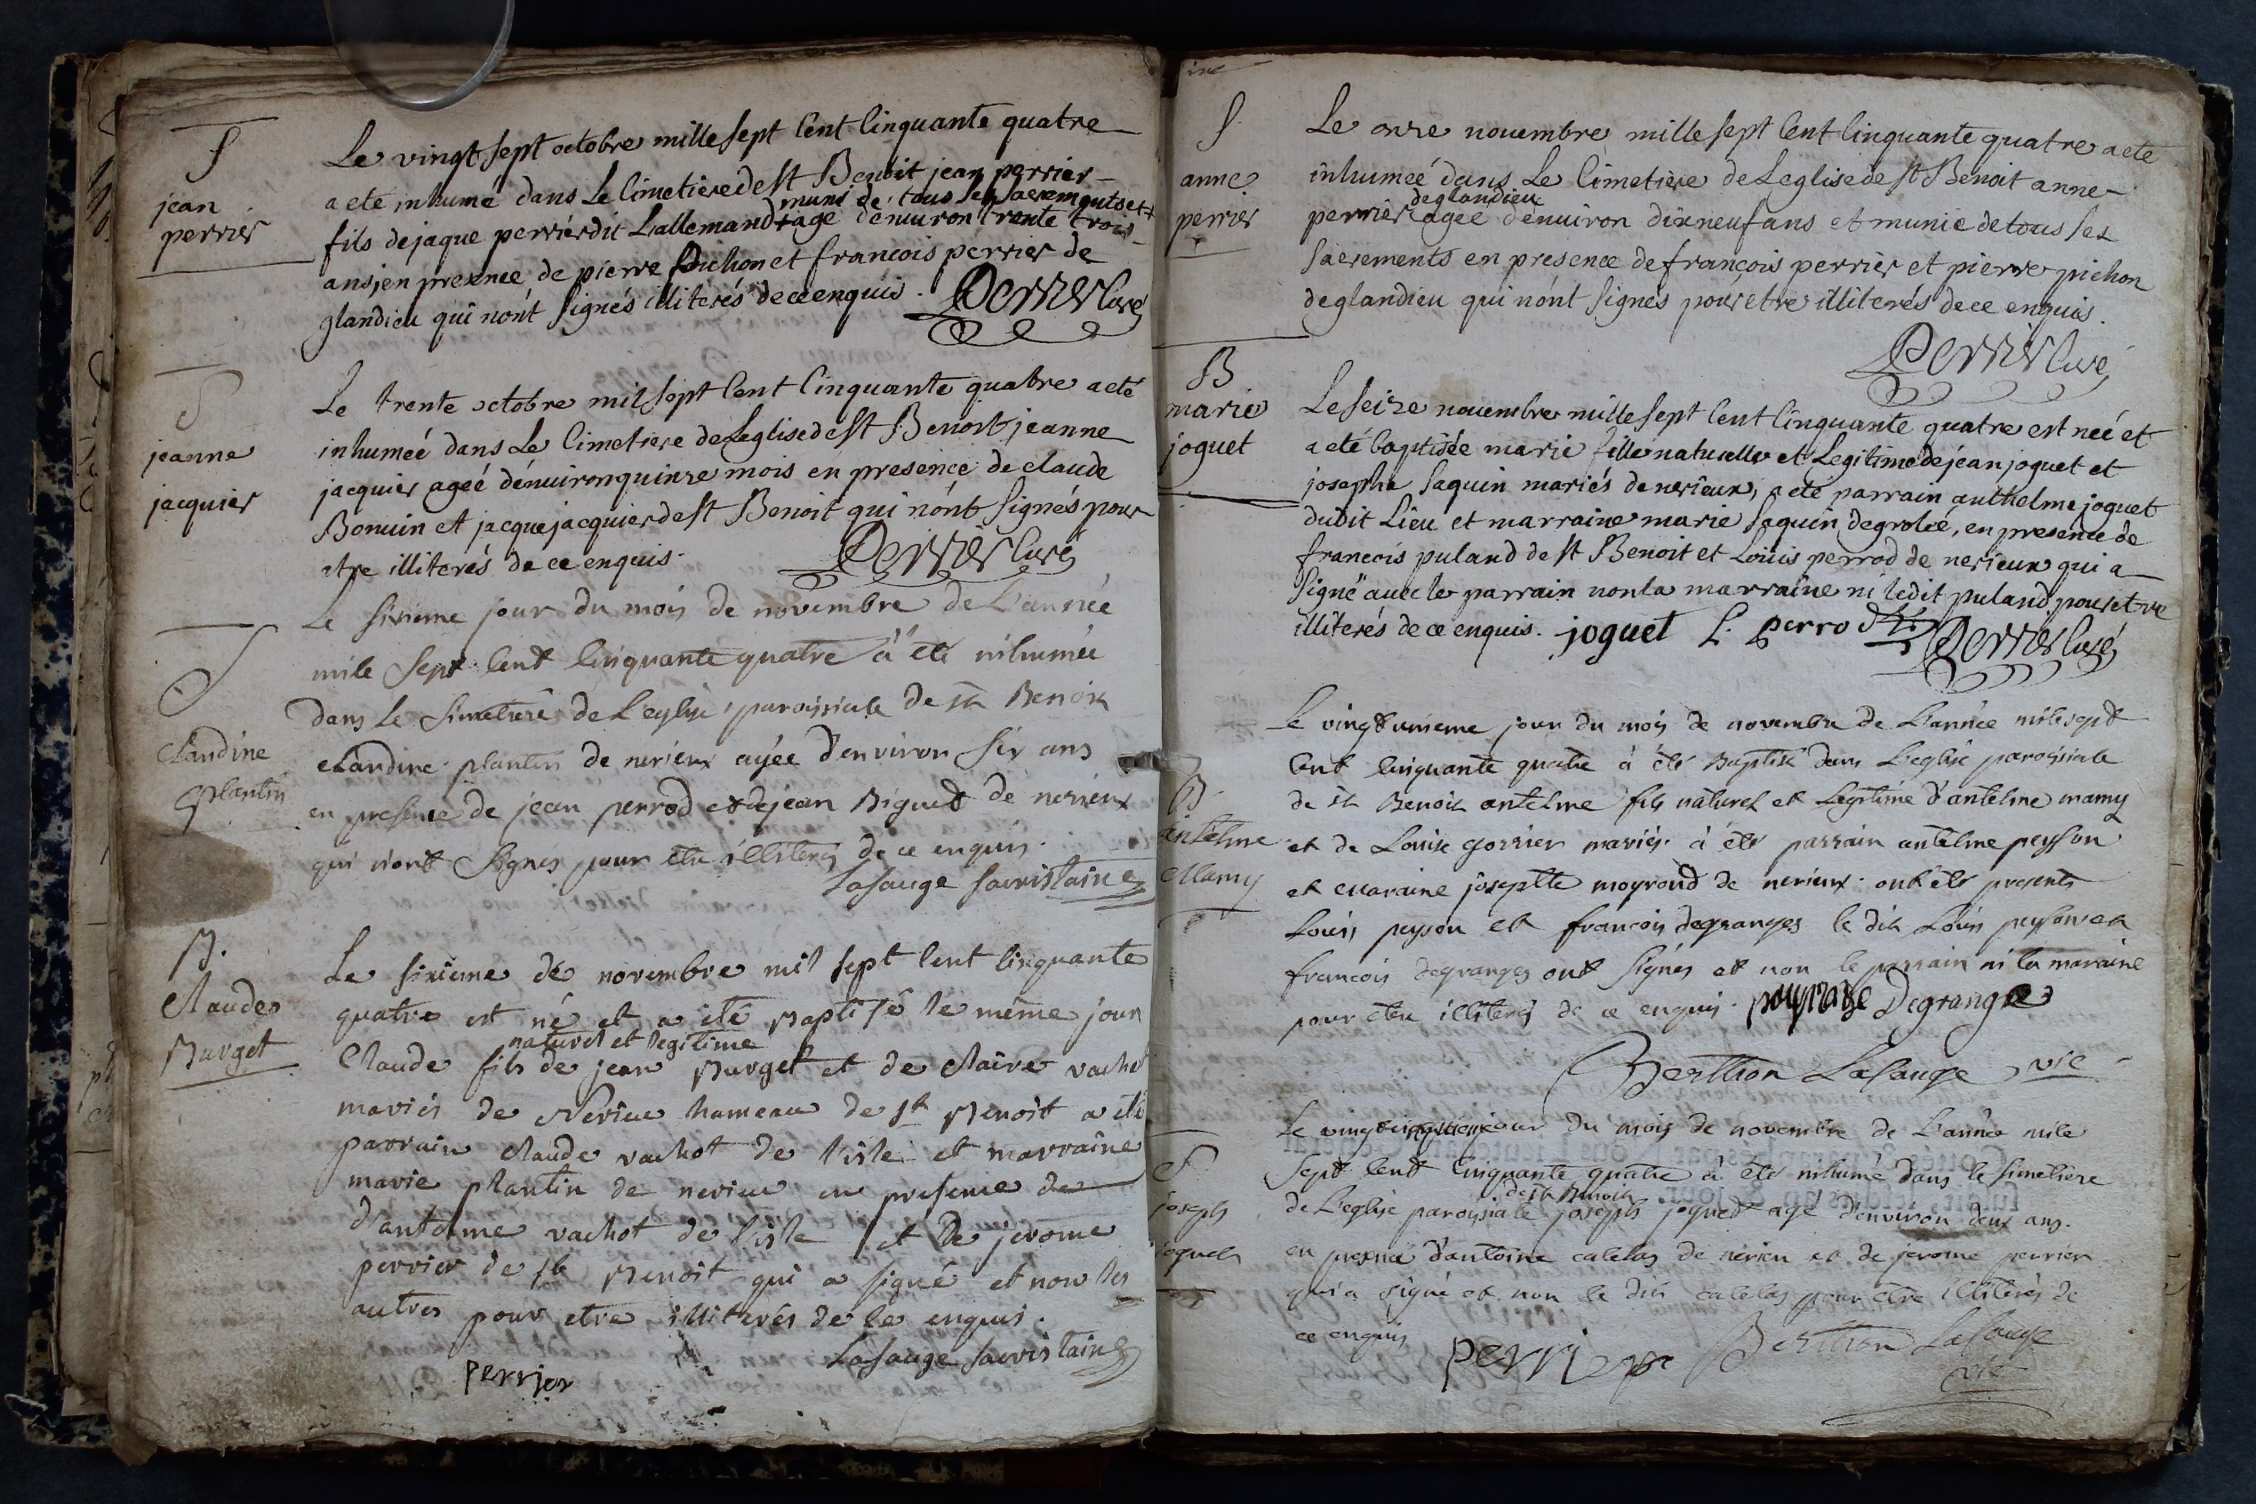 S
jean
perrier
Le vingt sept octobre mille sept Cent Cinquante quatre
a eté inhumé dans Le Cimetiere de st Benoit jean perrier
muni de tous ses sacrements et
fils de jaque perrier dit Lallemand agé d'enuiron trente trois
ans, en presence de pierre pichon et francois perrier de
glandieu qui n'ont signés illiterés de ce enquis. Perrier Curé
S
jeanne
jacquier
Le trente octobre mil sept Cent Cinquante quatre a eté
inhumeé dans Le Cimetiere de Leglise de st Benoit jeanne
jacquier ageé d'enuiron quinze mois en presence de claude
Bonuin et jacque jacquier de st Benoit qui n'ont signés pour
etre illiterés de ce enquis. Perrier Curé
S
Claudine
plantin
Le sixieme jour du mois de novembre de L'année
mile sept Cent Cinquante quatre à été inhumée
dans Le simetiere de L'eglise paroissiale de st Benoit
claudine plantin de nerieux agée d'environ six ans
en presence de jean perrod et de jean Biguet de nerieux
qui n'ont signes pour etre illiterés de ce enquis.
Lasauge sacristain
B.
Claude
Burget
Le sixieme de novembre mil sept Cent Cinquante
quatre est né et a été Baptisé le même jour
naturel et legitime
Claude fils de jean Burget et de Claire vachot
mariés de Nerieu hameau de st Benoit a été
parrain Claude vachot de l'isle et marraine
marie plantin de nerieu en presence de
d'antoine vachot de l'isle et de jerome
perrier de st Benoit qui a signé et non les
autres pour etre illiterés de ce enquis.
Lasauge sacristain
perrier
S.
anne
perrier
Le onze nouembre mille sept Cent Cinquante quatre a eté
inhumeé dans Le Cimetière de Leglise de st Benoit anne
de glandieu
perrier agee d'enuiron dix neuf ans et munie de tous ses
sacrements en presence de françois perrier et pierre pichon
de glandieu qui n'ont signés pour etre illiterés de ce enquis.
Perrier Curé
B
marie
joguet
Le seize nouembre mille sept Cent Cinquante quatre est neé et
a eté baptisée marie fille naturelle et Legitime de jean joguet et
josephe saquin mariés de nerieux, a eté parrain anthelme joguet
dudit Lieu et marraine marie saquin de groleé, en presence de
francois puland de st Benoit et Louis perrod de nerieux qui a
signé auec le parrain non la marraine ni ledit puland pour etre
illiterés de ce enquis. joguet L. perrod Perrier Curé
B
antelme
Mamy
Le vingt unieme jour du mois de novembre de L'année mile sept
Cent Cinquante quatre à été Baptisé dans L'eglise paroissiale
de st Benoit antelme fils naturel et Legitime d'antelme mamy
et de Louise gorrier mariés. à été parrain antelme peysson
et maraine josephte moyroud de nerieux. ont été presents
Louis peyson et françois degranges le dit Louis peyson et
francois degranges ont signés et non le parrain ni la maraine
pour etre illiterés de ce enquis. Degrange
Berthion Lasauge vic
S
joseph
joguet
Le vingt cinquieme jour du mois de novembre de L'année mile
sept Cent Cinquante quatre à été inhumé dans le simetiere
de st Benoit
de L'eglise paroissiale joseph joguet agé d'environ deux ans.
en presence d'antoine catelas de nerieu et de jerome perrier
qui a signé et non le dit catelas pour etre illiterés de
ce enquis perrier Berthion Lasauge
vic